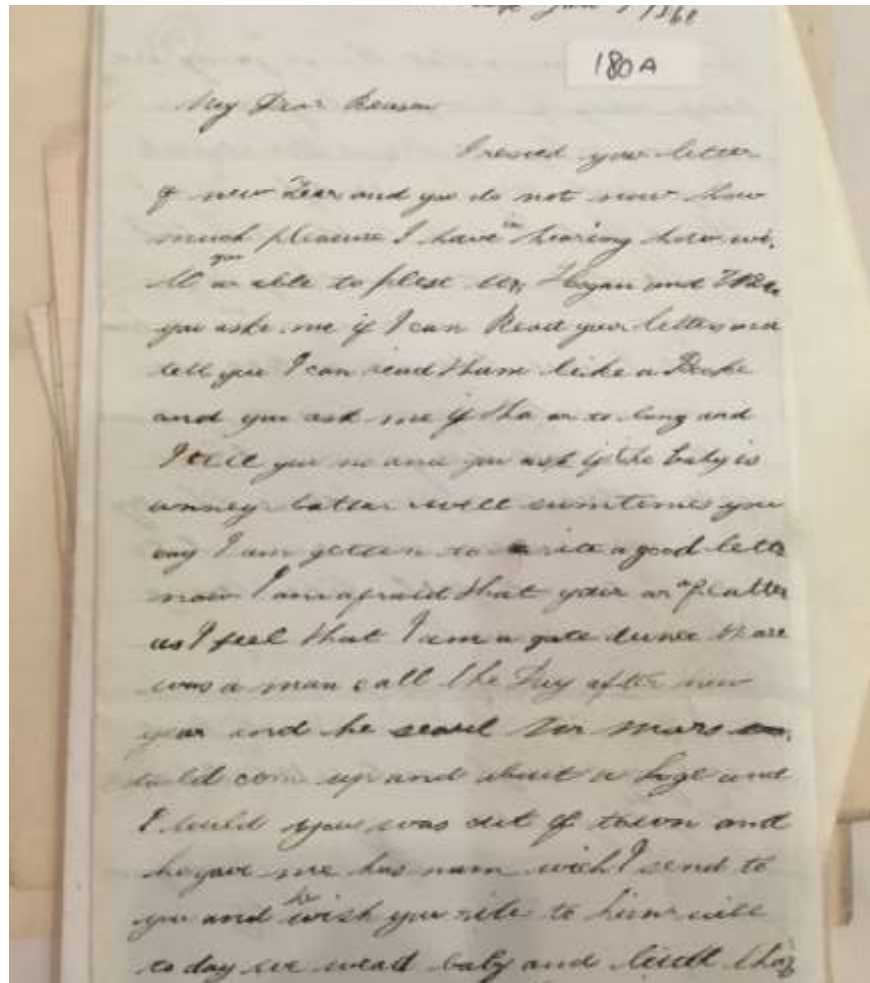 Jan 1868
180A
My Dear Reason
I resied your letter
of new Year and you do not now how
much pleasure I have in hearing how wi
you ar able to plese Mr Hogan and
you aske me if I can Read your letters and
tell you I can read tham like a Booke
and you ask me if tha ar to long and
I tell you no and you ask if the baby is
enney battar well sumtimes you
say I am getten to rite a good lette
now I am afraid that your ar a flatter
as I feel that I am a gate dunce thare
was a man call the Day after new
year and he seard
could com up and about a and
I tould you was out of town and
he gave me has nam wich I send to
you and he wish you rite to him will
to day we wead baby and